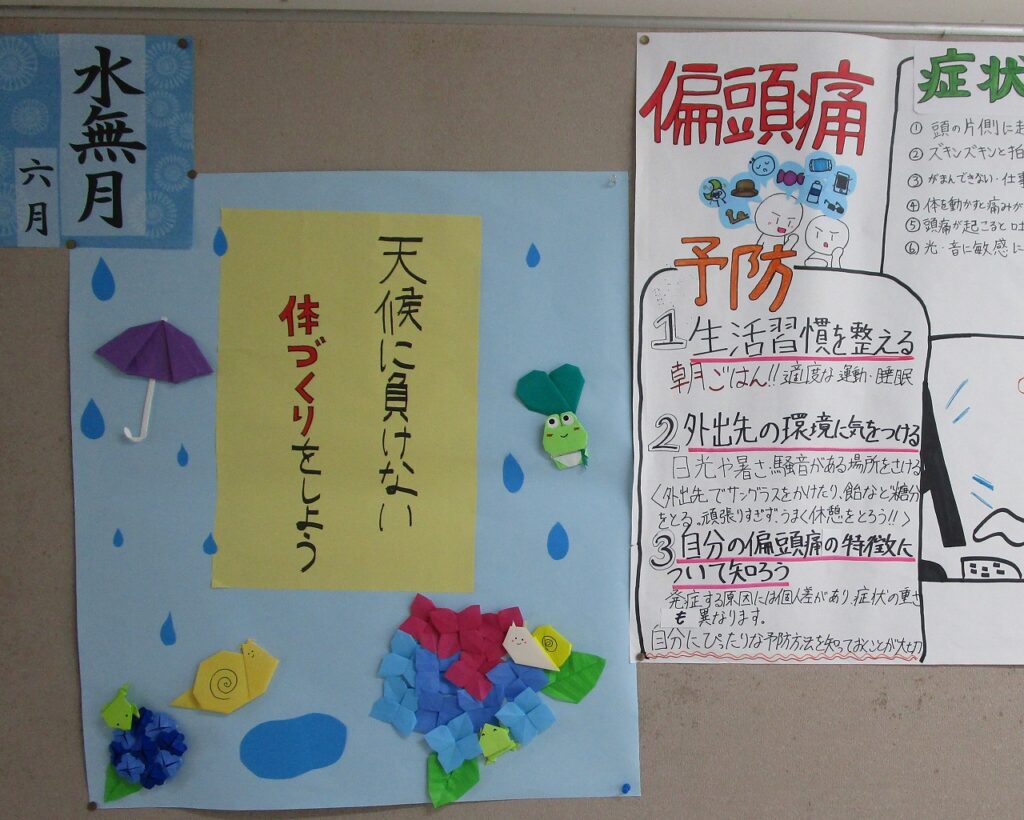 水無月
六月
天候に負けない
体づくりをしよう
偏頭痛
予防
1 生活習慣を整える
朝ごはん!! 適度な運動・睡眠
2 外出先の環境に気をつける
日光や暑さ、騒音がある場所をさける
〈外出先でサングラスをかけたり、飴など糖分
をとる。頑張りすぎず、うまく休憩をとろう!!〉
3 自分の偏頭痛の特徴に
ついて知ろう
発症する原因には個人差があり、症状の重さ
も 異なります。
自分にぴったりな予防方法を知っておくことが大切
症状
① 頭の片側に起
② ズキンズキンと拍
③ がまんできない・仕事
④ 体を動かすと痛みが
⑤ 頭痛が起こると吐
⑥ 光・音に敏感に